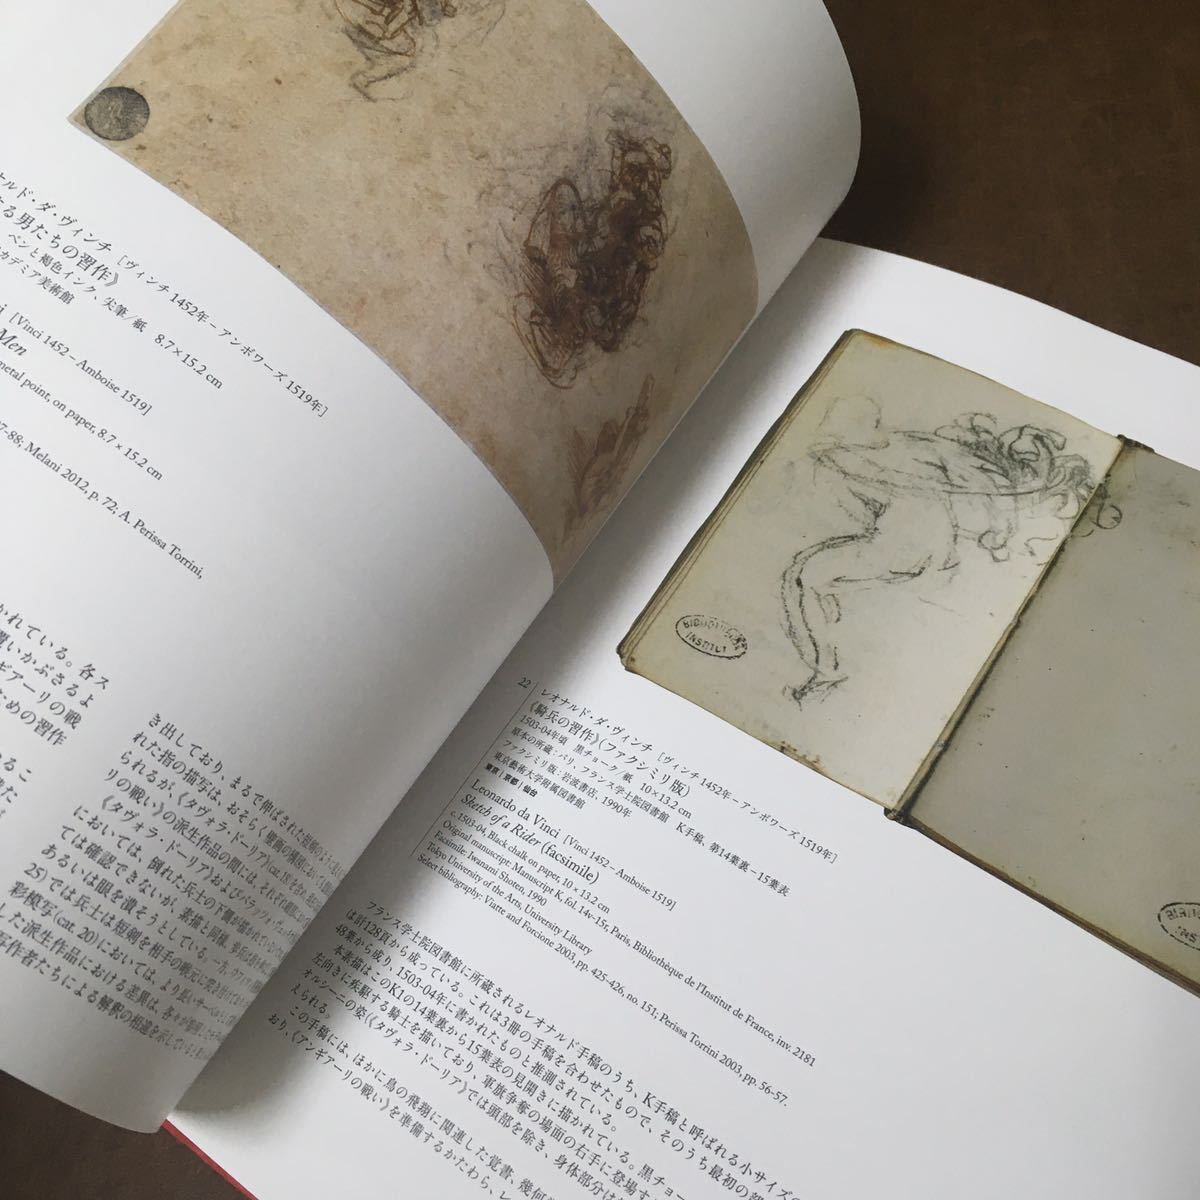 オナルド・ダ・ヴィンチ [ヴィンチ 1452年–アンボワーズ 1519年]
る男たちの習作》
ペンと褐色インク、尖筆/紙 8.7×15.2 cm
カデミア美術館
[Vinci 1452–Amboise 1519]
Men
metal point, on paper, 8.7 × 15.2 cm
7-88; Melani 2012, p. 72; A. Perissa Torrini,
かれている。各ス
覆いかぶさるよ
ギアーリの戦
ための習作
き出しており、まるで伸ばされた
れた指の描写は、おそらく壁画の構図において
られるが、《タヴォラ・ドーリア》(cat. 18)を含む
リの戦い》の派生作品の間には、それぞれ
《タヴォラ・ドーリア》および
においては、倒れた兵士の下顎が描かれていない
ては確認できないが、素描と同様、
あるいは眼を潰そうとしている。一方、
25)では兵士は短剣を相手の喉元に突き付け
彩模写(cat. 20)においては、より長い
した派生作品における差異は、各々が
写作者たちによる解釈の相違を示していると
BIBLIOTHEQUE
INSTITUT
22
レオナルド・ダ・ヴィンチ [ヴィンチ 1452年–アンボワーズ 1519年]
《騎兵の習作》(ファクシミリ版)
1503-04年頃 黒チョーク/紙 10×13.2 cm
原本の所蔵:パリ、フランス学士院図書館 K手稿、第14葉裏–15葉表
ファクシミリ版:岩波書店、1990年
東京藝術大学附属図書館
東京|京都|仙台
Leonardo da Vinci [Vinci 1452–Amboise 1519]
Sketch of a Rider (facsimile)
c.1503-04, Black chalk on paper, 10 × 13.2 cm
Original manuscript: Manuscript K, fol. 14v-15r, Paris, Bibliothèque de l'Institut de France, inv. 2181
Facsimile: Iwanami Shoten, 1990
Tokyo University of the Arts, University Library
Select bibliography: Viatte and Forcione 2003, pp. 425-426, no. 151; Perissa Torrini 2003, pp. 56-57.
フランス学士院図書館に所蔵されるレオナルド手稿のうち、K手稿と呼ばれる小サイズの
は計128頁から成っている。これは3冊の手稿を合わせたもので、そのうち最初の部
48葉から成り、1503-04年に書かれたものと推測されている。
本素描はこのK1の14葉裏から15葉表の見開きに描かれている。黒チョー
左向きに疾駆する騎士を描いており、軍旗争奪の場面の右手に登場す
オルシーニの姿(《タヴォラ・ドーリア》では頭部を除き、身体部分は
えられる。
この手稿には、ほかに鳥の飛翔に関連した覚書、幾何学
おり、《アンギアーリの戦い》を準備するかたわら、レ